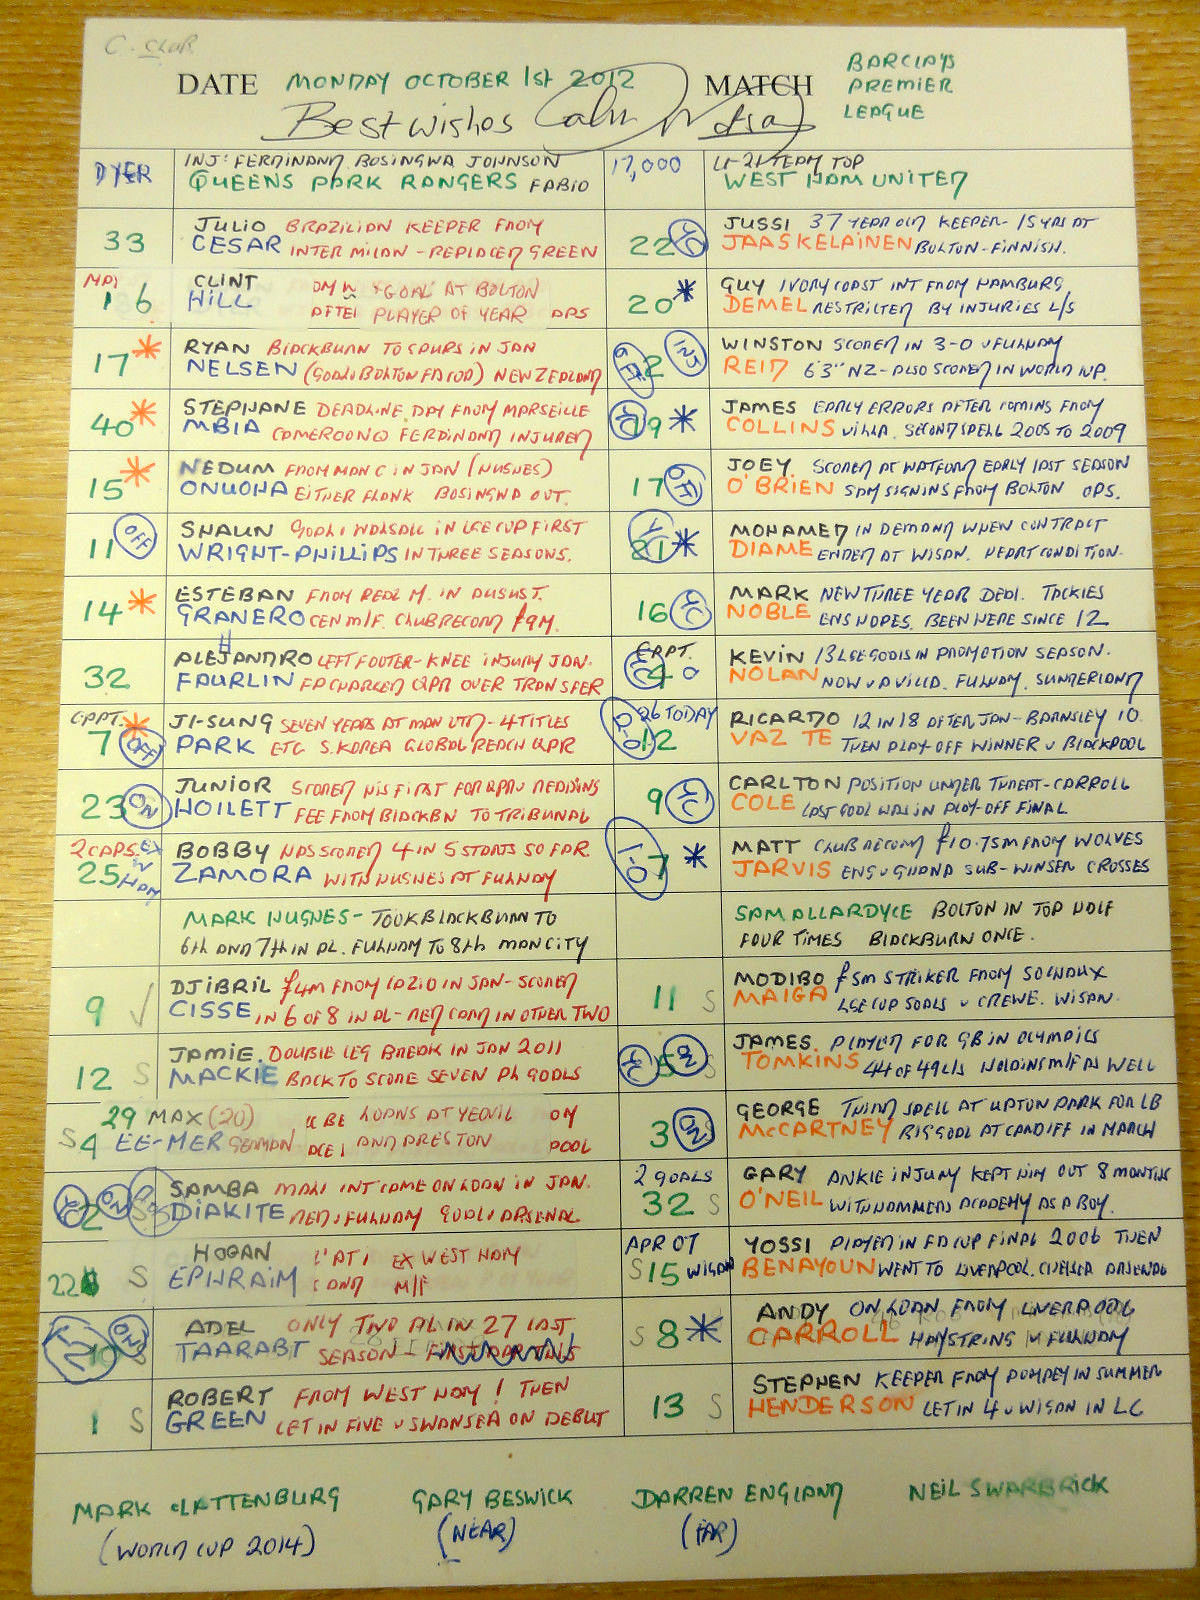 C. CLUB
DATE MONDAY OCTOBER 1st 2012 MATCH BARCLAYS PREMIER LEAGUE
Best wishes
DYER INJ: FERDINAND BOSINGWA JOHNSON
QUEENS PARK RANGERS FABIO
17,000 U-21 TEAM TOP
WEST HAM UNITED
33 JULIO CESAR BRAZILIAN KEEPER FROM
INTER MILAN - REPLACED GREEN
22 YC JUSSI JAASKELAINEN 37 YEAR OLD KEEPER - 15 YRS AT
BOLTON - FINNISH.
6 CLINT HILL GOAL AT BOLTON
PLAYER OF YEAR
20 * GUY DEMEL IVORY COAST INT FROM HAMBURG
RESTRICTED BY INJURIES L/S
17 * RYAN NELSEN BLACKBURN TO SPURS IN JAN
(GOAL v BOLTON FA CUP) NEW ZEALAND
2 OFF INJ WINSTON REID SCORED IN 3-0 v FULHAM
6'3" NZ - ALSO SCORED IN WORLD CUP.
40 * STEPHANE MBIA DEADLINE DAY FROM MARSEILLE
CAMEROON FERDINAND INJURED
19 YC * JAMES COLLINS EARLY ERRORS AFTER COMING FROM
VILLA. SECOND SPELL 2005 TO 2009
15 * NEDUM ONUOHA FROM MAN C IN JAN (HUGHES)
EITHER FLANK BOSINGWA OUT.
17 OFF JOEY O'BRIEN SCORED AT WATFORD EARLY LAST SEASON
SAM SIGNING FROM BOLTON OPS.
11 OFF SHAUN WRIGHT-PHILLIPS GOAL v WALSALL IN LGE CUP FIRST
IN THREE SEASONS.
21 * MOHAMED DIAME IN DEMAND WHEN CONTRACT
ENDED AT WIGAN. HEART CONDITION.
14 * ESTEBAN GRANERO FROM REAL M. IN AUGUST.
CEN M/F. CLUB RECORD £9M.
16 YC MARK NOBLE NEW THREE YEAR DEAL. TACKLES
ENG HOPES. BEEN HERE SINCE 12
32 ALEJANDRO FAURLIN LEFT FOOTER - KNEE INJURY JAN.
FA CHARGED QPR OVER TRANSFER
CAPT. 4 YC KEVIN NOLAN 13 LGE GOALS IN PROMOTION SEASON.
NOW v A VILLA. FULHAM. SUNDERLAND
CAPT. * 7 OFF JI-SUNG PARK SEVEN YEARS AT MAN UTD - 4 TITLES
ETC S. KOREA GLOBAL REACH QPR
26 TODAY 12 2-0 RICARDO VAZ TE 12 IN 18 AFTER JAN - BARNSLEY 10
THEN PLAY-OFF WINNER v BLACKPOOL
23 ON JUNIOR HOILETT SCORED HIS FIRST FOR QPR v READING
FEE FROM BLACKBN TO TRIBUNAL
9 YC CARLTON COLE POSITION UNDER THREAT - CARROLL
LAST GOAL WAS IN PLAY-OFF FINAL
2 CAPS. EX W HAM 25 BOBBY ZAMORA HAS SCORED 4 IN 5 STARTS SO FAR.
WITH HUGHES AT FULHAM
7 1-0 * MATT JARVIS CLUB RECORD £10.75M FROM WOLVES
ENG v GHANA SUB - WINGER CROSSES
MARK HUGHES - TOOK BLACKBURN TO
6th AND 7th IN PL. FULHAM TO 8th MAN CITY
SAM ALLARDYCE BOLTON IN TOP HALF
FOUR TIMES BLACKBURN ONCE.
9 √ DJIBRIL CISSE £4M FROM LAZIO IN JAN - SCORED
IN 6 OF 8 IN PL - RED CARD IN OTHER TWO
11 S MODIBO MAIGA £5M STRIKER FROM SOCHAUX
LGE CUP GOALS v CREWE. WIGAN.
12 S JAMIE MACKIE DOUBLE LEG BREAK IN JAN 2011
BACK TO SCORE SEVEN PL GOALS
5 YC ON S JAMES TOMKINS PLAYED FOR GB IN OLYMPICS
44 OF 49 L/S HOLDING M/F AS WELL
29 MAX (20)
S 4 EE-MER GERMAN LOANS AT YEOVIL
AND PRESTON
3 ON GEORGE McCARTNEY THIRD SPELL AT UPTON PARK FOR LB
BIG GOAL AT CARDIFF IN MARCH
2 YC ON S SAMBA DIAKITE MALI INT CAME ON LOAN IN JAN.
RED v FULHAM GOAL v ARSENAL
2 GOALS 32 S GARY O'NEIL ANKLE INJURY KEPT HIM OUT 8 MONTHS
WITH HAMMERS ACADEMY AS A BOY.
22 S HOGAN EPHRAIM EX WEST HAM
M/F
APR 07 S 15 WIGAN YOSSI BENAYOUN PLAYED IN FA CUP FINAL 2006 THEN
WENT TO LIVERPOOL. CHELSEA ARSENAL
10 S ADEL TAARABT ONLY TWO PL IN 27 LAST
SEASON -
S 8 * ANDY CARROLL ON LOAN FROM LIVERPOOL
HAMSTRING v FULHAM
1 S ROBERT GREEN FROM WEST HAM! THEN
LET IN FIVE v SWANSEA ON DEBUT
13 S STEPHEN HENDERSON KEEPER FROM POMPEY IN SUMMER
LET IN 4 v WIGAN IN LC
MARK CLATTENBURG GARY BESWICK DARREN ENGLAND NEIL SWARBRICK
(WORLD CUP 2014) (NEAR) (FAR)